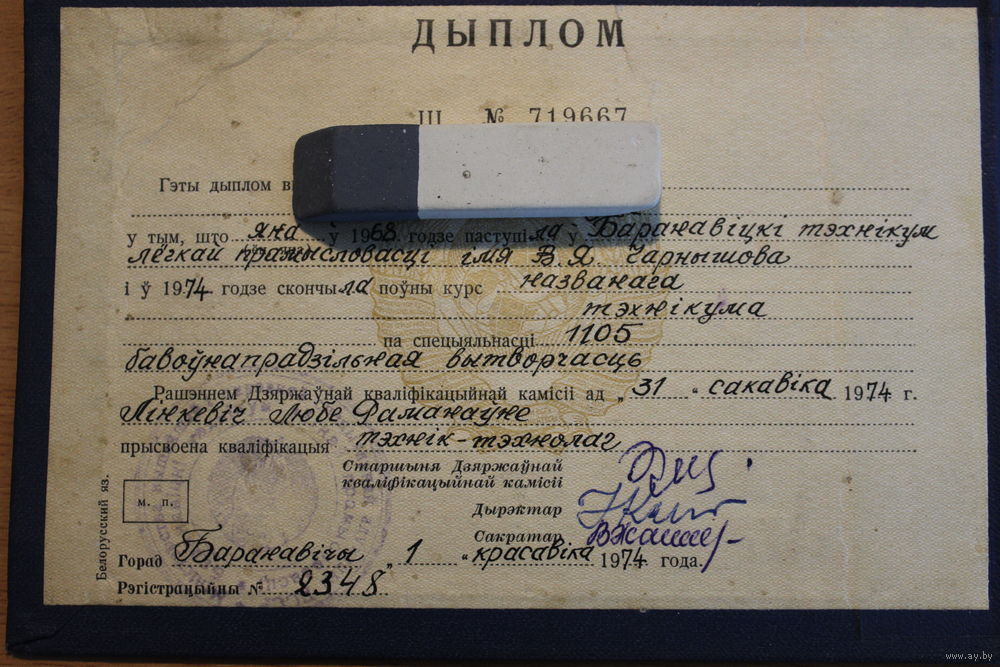 ДЫПЛОМ
Ш № 719667
Гэты дыплом в
у тым, што яна ў 1968 годзе паступіла ў Баранавіцкі тэхнікум
лёгкай прамысловасці імя В.Я. Чарнышова
і ў 1974 годзе скончыла поўны курс названага
тэхнікума
па спецыяльнасці 1105
бавоўнапрадзільная вытворчасць
Рашэннем Дзяржаўнай кваліфікацыйнай камісіі ад „31" сакавіка 1974 г.
Лінкевіч Любе Раманаўне
прысвоена кваліфікацыя тэхнік-тэхнолаг
Старшыня Дзяржаўнай
кваліфікацыйнай камісіі
Дырэктар
Сакратар
м. п.
Горад Баранавічы „1" красавіка 1974 года.
Рэгістрацыйны № 2348
Белорусский яз.
www.ay.by